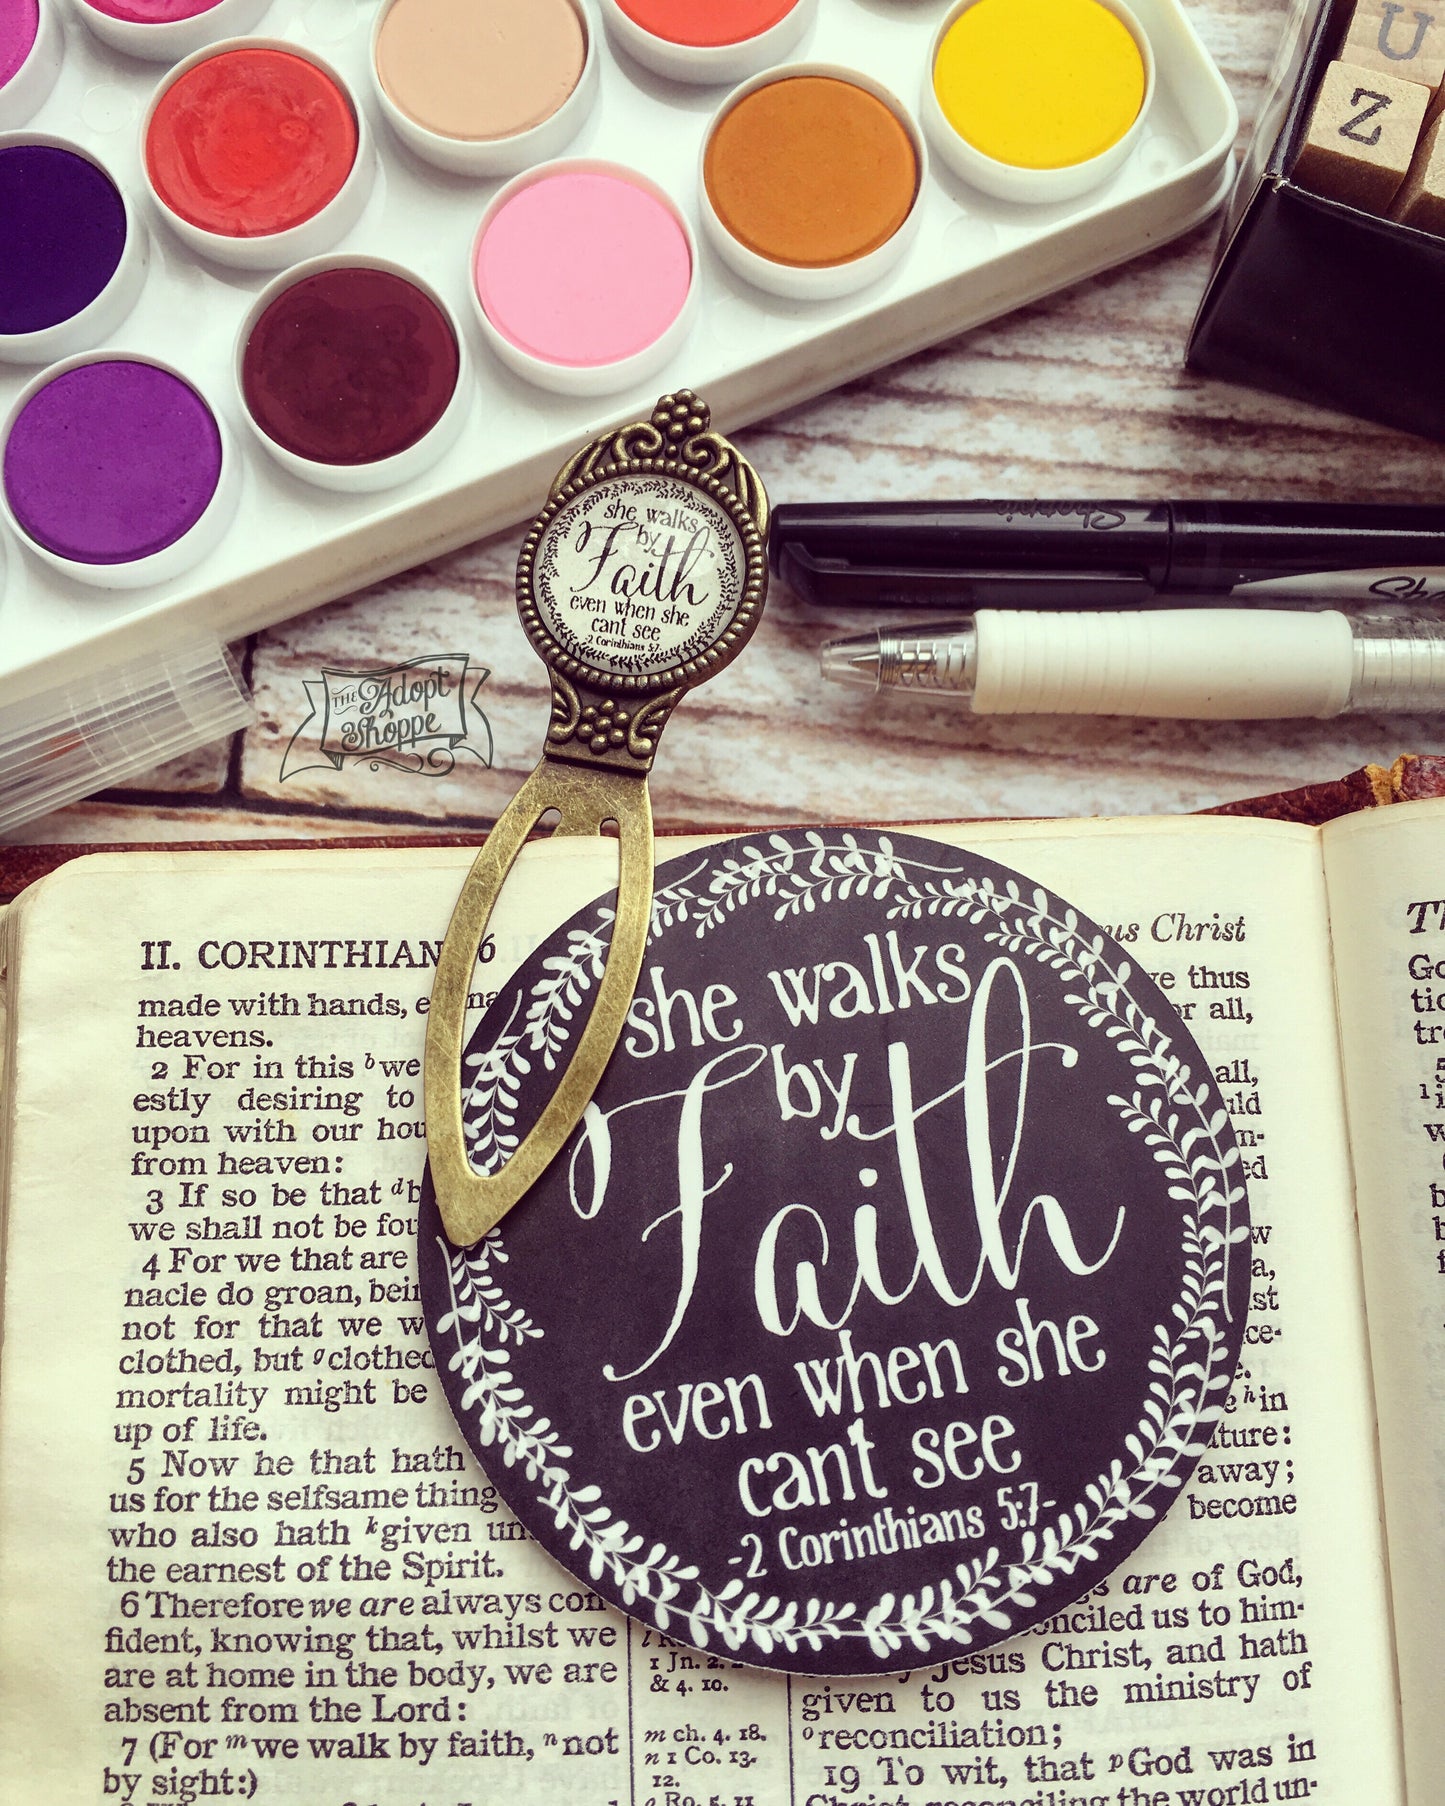 U
Z
Sharpie
she walks
by
Faith
even when she
cant see
-2 Corinthians 5:7-
THE Adopt
Shoppe
she walks
by
Faith
even when she
cant see
-2 Corinthians 5:7-
II. CORINTHIAN 6
made with hands, e
heavens.
2 For in this b we
estly desiring to
upon with our hou
from heaven:
3 If so be that d b
we shall not be fou
4 For we that are
nacle do groan, bein
not for that we w
clothed, but g clothed
mortality might be
up of life.
5 Now he that hath
us for the selfsame thing
who also hath k given un
the earnest of the Spirit.
6 Therefore we are always con
fident, knowing that, whilst we
are at home in the body, we are
absent from the Lord:
7 (For m we walk by faith, n not
by sight:)
1 Jn. 2.
& 4. 10.
m ch. 4. 18.
n 1 Co. 13.
12.
o Ro. 5. 11
us Christ
ve thus
or all,
all,
uld
m-
ed
w
a,
st
ce-
e.
e h in
ature:
away;
become
s are of God,
onciled us to him-
Jesus Christ, and hath
given to us the ministry of
o reconciliation;
19 To wit, that p God was in
Christ, reconciling the world un-